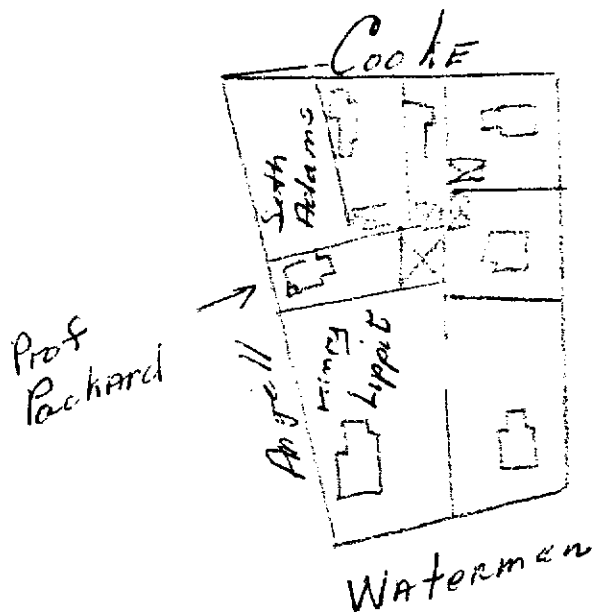 Cooke
Seth
Adams
Prof
Packard
Angell
Henry
Lippit
Waterman